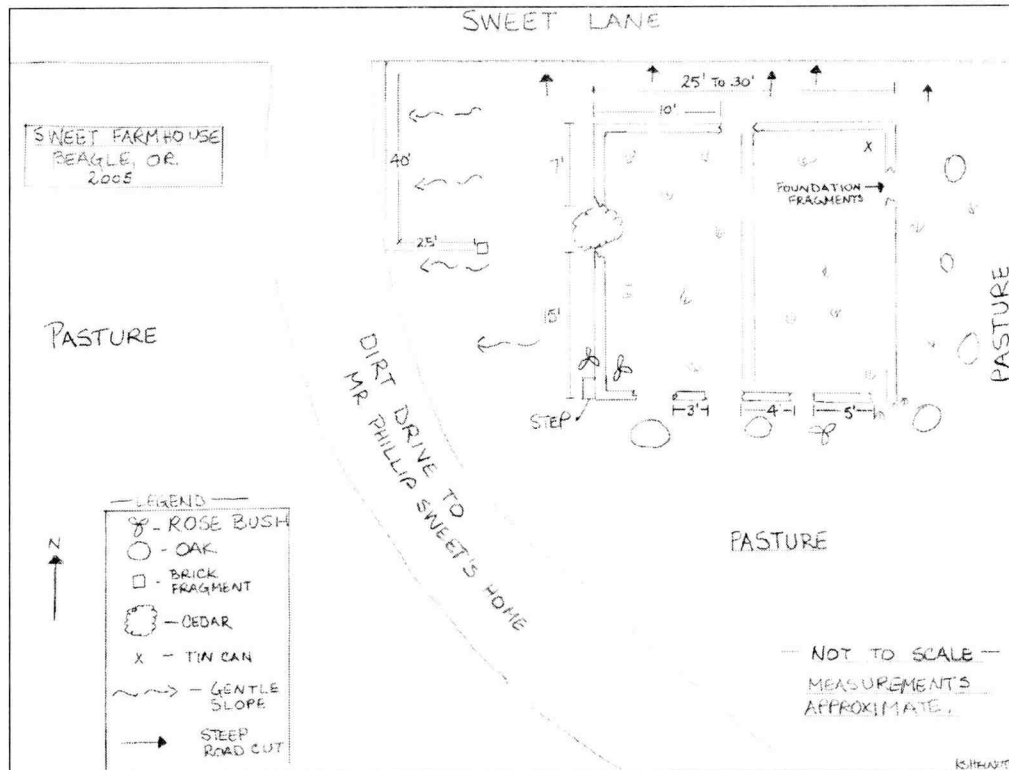 SWEET LANE
SWEET FARMHOUSE
BEAGLE, OR.
2005
25' TO 30'
10'
7'
40'
25'
15'
X
FOUNDATION
FRAGMENTS
PASTURE
PASTURE
DIRT DRIVE TO
MR PHILLIP SWEET'S HOME
STEP
3'
4'
5'
PASTURE
LEGEND
- ROSE BUSH
- OAK
- BRICK
FRAGMENT
- CEDAR
X - TIN CAN
- GENTLE
SLOPE
STEEP
ROAD CUT
N
- NOT TO SCALE -
MEASUREMENTS
APPROXIMATE.